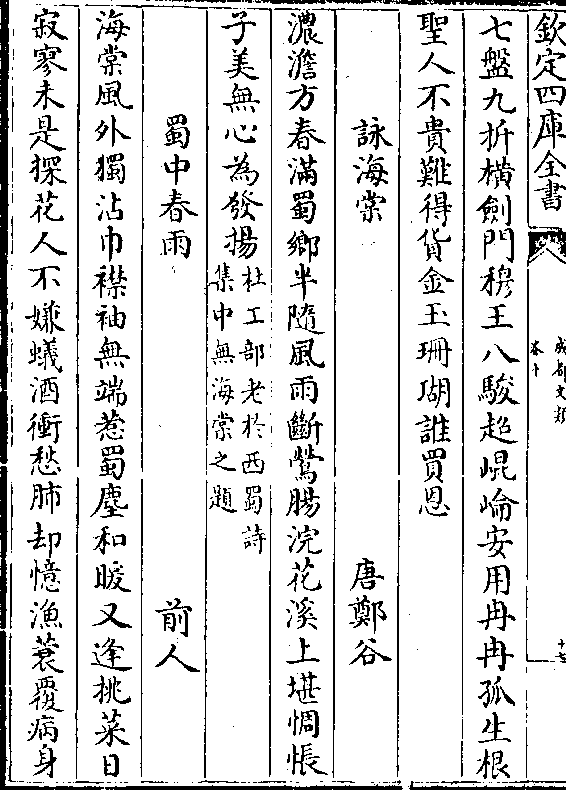 欽定四庫全書
成都文類
卷十
七盤九折橫劍門穆王八駿超崐崘安用冉冉孤生根
聖人不貴難得貨金玉珊瑚誰買恩
詠海棠 唐鄭谷
濃澹方春滿蜀鄉半隨風雨斷鶯腸浣花溪上堪惆悵
子美無心為發揚杜工部老於西蜀詩集中無海棠之題
蜀中春雨 前人
海棠風外獨沾巾襟袖無端惹蜀塵和暖又逢挑菜日
寂寥未是探花人不嫌蟻酒衝愁肺却憶漁蓑覆病身